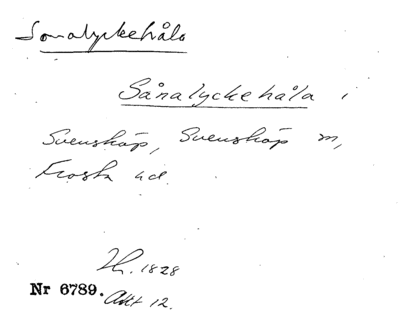 Sonalyckehålo
Sånalyckehåla i
Svensköp, Svensköp sn,
Frosta hd.
Lh. 1828
Nr 6789. Akt 12.